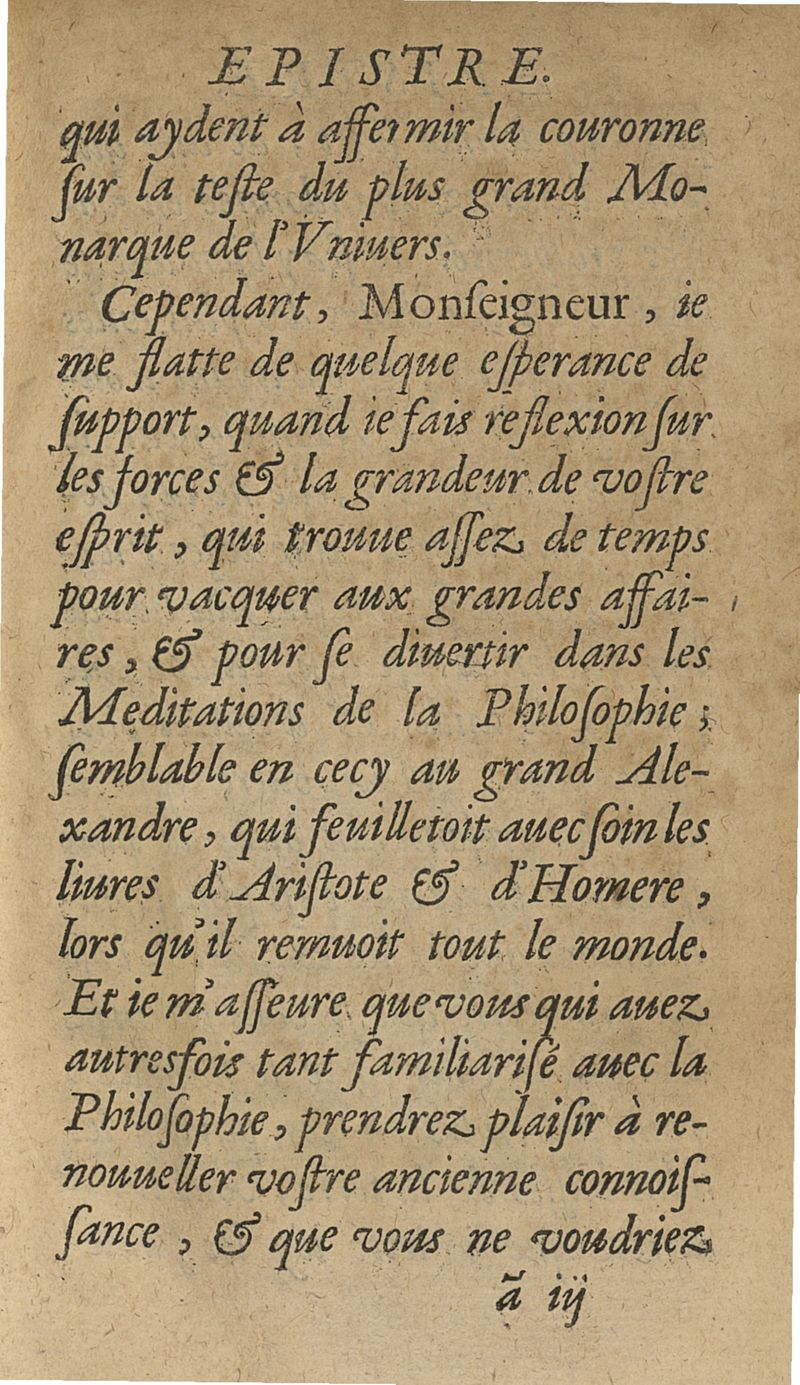 EPISTRE.
qui aydent à affermir la couronne
ſur la teſte du plus grand Mo-
narque de l'Vniuers.
Cependant, Monſeigneur, ie
me flatte de quelque eſperance de
ſupport, quand ie fais reflexion ſur
les forces & la grandeur de voſtre
eſprit, qui trouue aſſez de temps
pour vacquer aux grandes affai-
res, & pour ſe diuertir dans les
Meditations de la Philoſophie;
ſemblable en cecy au grand Ale-
xandre, qui feuilletoit auec ſoin les
liures d'Ariſtote & d'Homere,
lors qu'il remuoit tout le monde.
Et ie m'aſſeure que vous qui auez
autresfois tant familiariſé auec la
Philoſophie, prendrez plaiſir à re-
nouueller voſtre ancienne connoiſ-
ſance, & que vous ne voudriez
ã iij